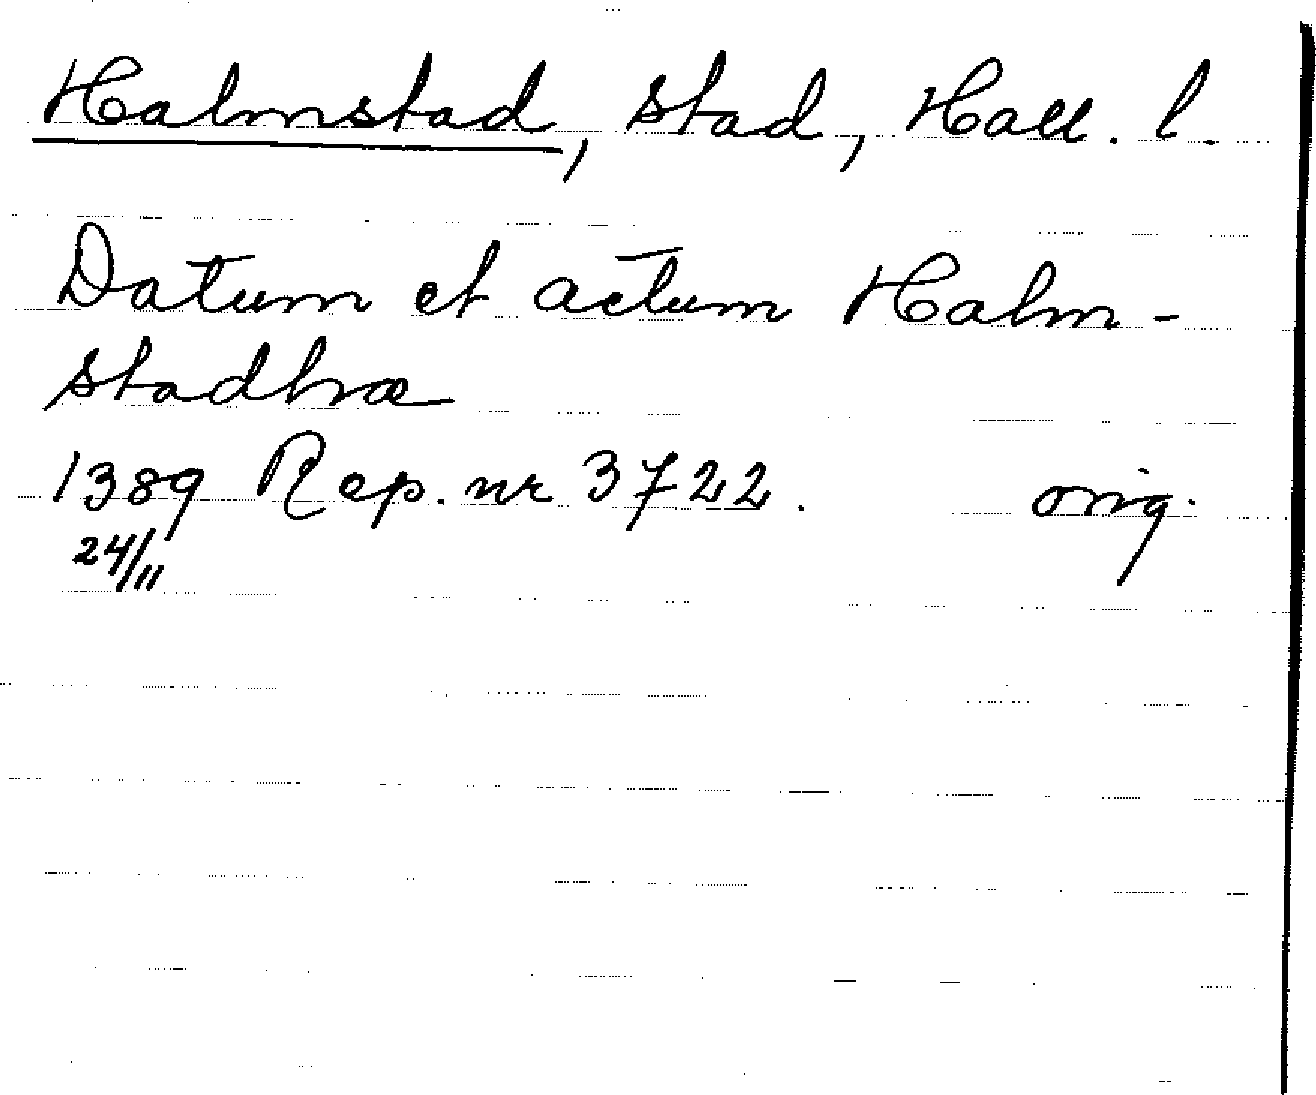 Halmstad, stad, Hall. l.
Datum et actum Halm-
stadhræ
1389 Rep. nr 3722. orig.
24/11